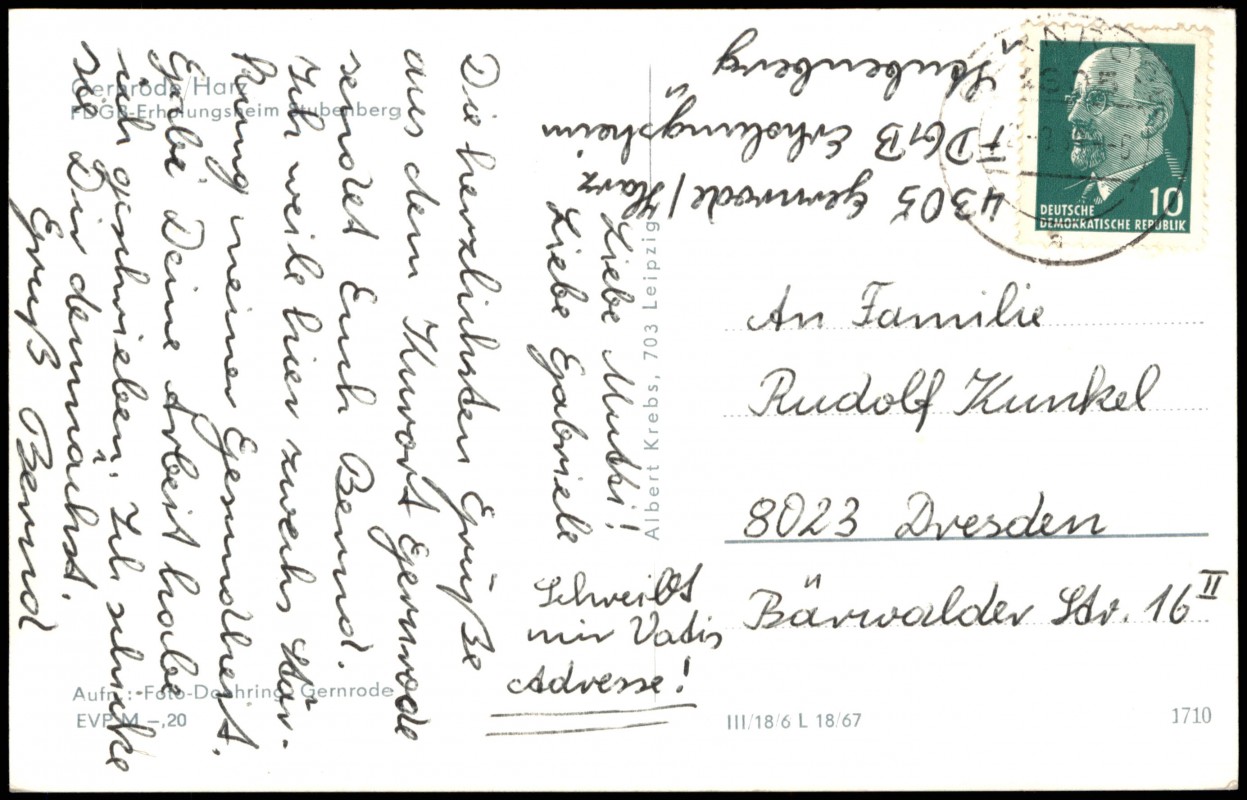 Gernrode/Harz
FDGB-Erholungsheim Stubenberg
Liebe Mutti!
Liebe Gabriele
Die herzlichsten Grüße
aus dem Kurort Gernrode
sendet Euch Bernd.
Ich weile hier zwecks Stär-
kung meiner Gesundheit.
Gabi Deine Arbeit habe
ich geschrieben. Ich schicke
sie Dir demnächst.
Gruß Bernd
Schreibt
mir Vatis
Adresse!
Aufn.: Foto-Doehring, Gernrode
EVP M -,20
Albert Krebs, 703 Leipzig
4305 Gernrode/Harz
FDGB Erholungsheim
Stubenberg
10
DEUTSCHE
DEMOKRATISCHE REPUBLIK
An Familie
Rudolf Kunkel
8023 Dresden
Bärwalder Str. 16 II
III/18/6 L 18/67
1710